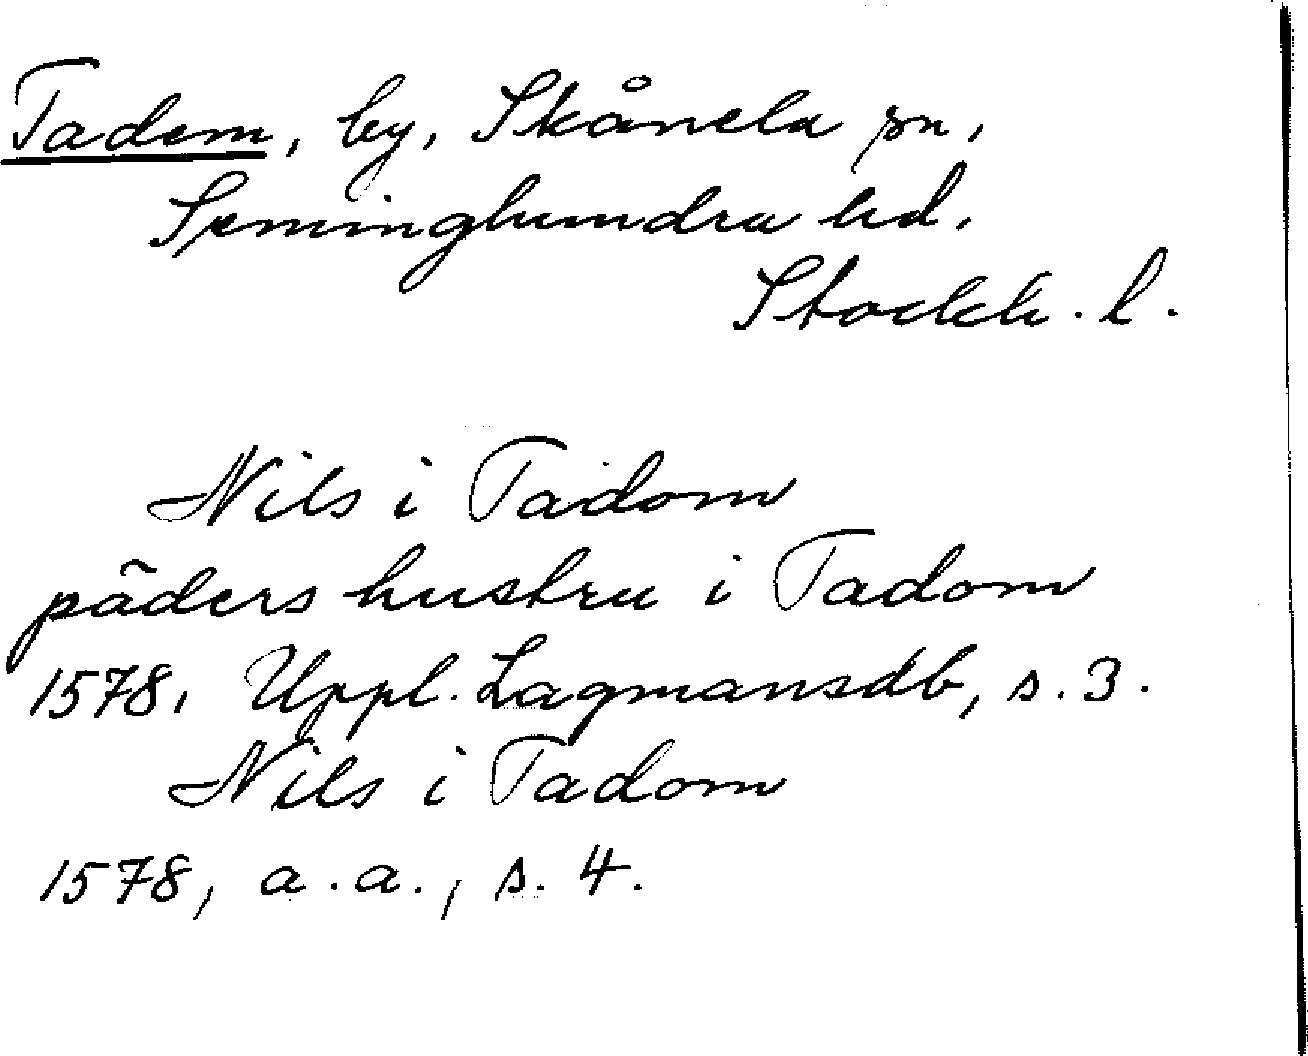 Tadem, by, Skånela sn,
Seminghundra hd.
Stockh. l.
Nils i Tadom
päders hustru i Tadom
1578, Uppl. Lagmansdb, s. 3.
Nils i Tadom
1578, a.a., s. 4.